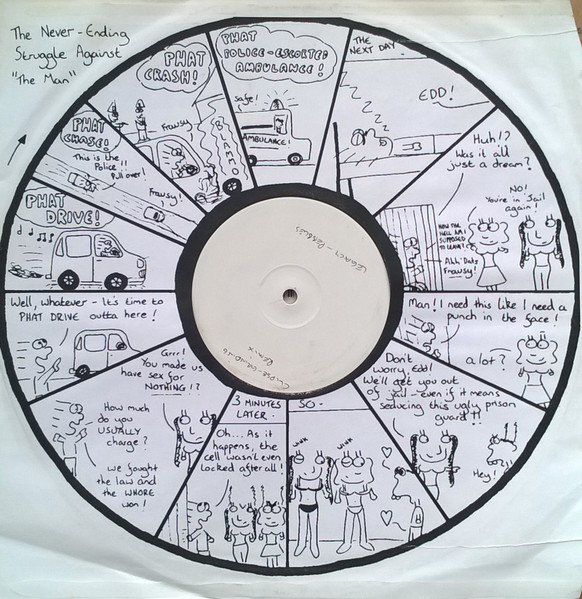 The Never-Ending
Struggle Against
"The Man"
PHAT
DRIVE!
PHAT
CHASE!
This is the
Police!!
Pull over!
Frawsy!
PHAT
CRASH!
Frawsy
BLAMMO
PHAT
POLICE-ESCORTED
AMBULANCE!
Safe!
AMBULANCE!
THE
NEXT DAY-
Z
Z
Z
Z
EDD!
Huh!?
Was it all
just a dream?
NO!
You're in Jail
again!
HOW THE
HELL AM I
SUPPOSED
TO LEAVE?
Ahh! Dat's
Frawsy!
Man! I need this like I need a
punch in the face!
a lot?
Don't
worry, Edd!
We'll get you out
of jail - even if it means
seducing this ugly prison
guard!!
Hey!
SO-
WINK
WINK
3 MINUTES
LATER-
Oh... As it
happens, the
cell wasn't even
locked after all!
Grrr!
You made us
have sex for
NOTHING!?
How much
do you
USUALLY
charge?
we fought
the law and
the WHORE
won!
Well, whatever - It's time to
PHAT DRIVE outta here!
LEGACY - 
REMIX